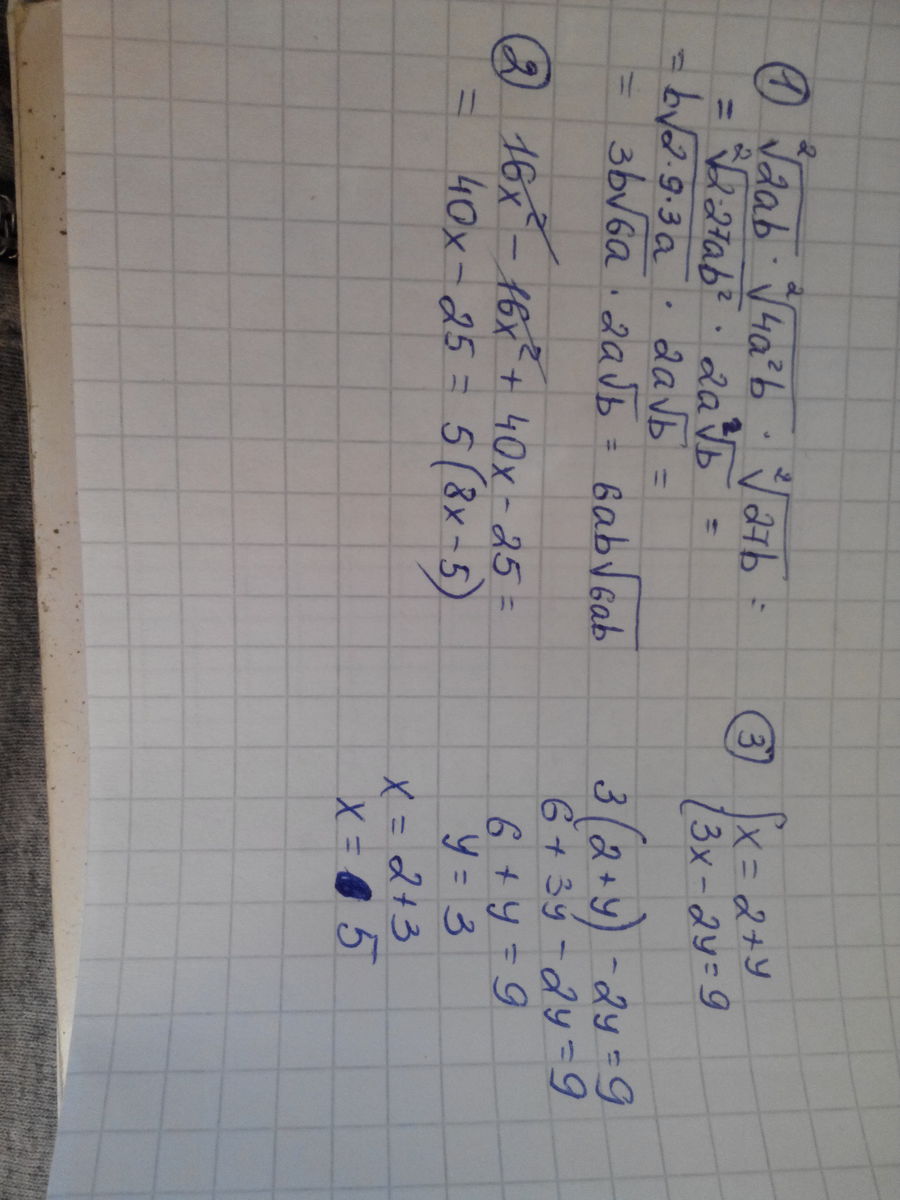 ① ²√2ab · ²√4a²b · ²√27b =
= ²√2·27ab² · 2a ²√b =
= b√2·9·3a · 2a√b =
= 3b√6a · 2a√b = 6ab√6ab
② 16x² - 16x² + 40x - 25 =
= 40x - 25 = 5(8x - 5)
③ { x = 2 + y
3x - 2y = 9
3(2+y) - 2y = 9
6 + 3y - 2y = 9
6 + y = 9
y = 3
x = 2 + 3
x = 5